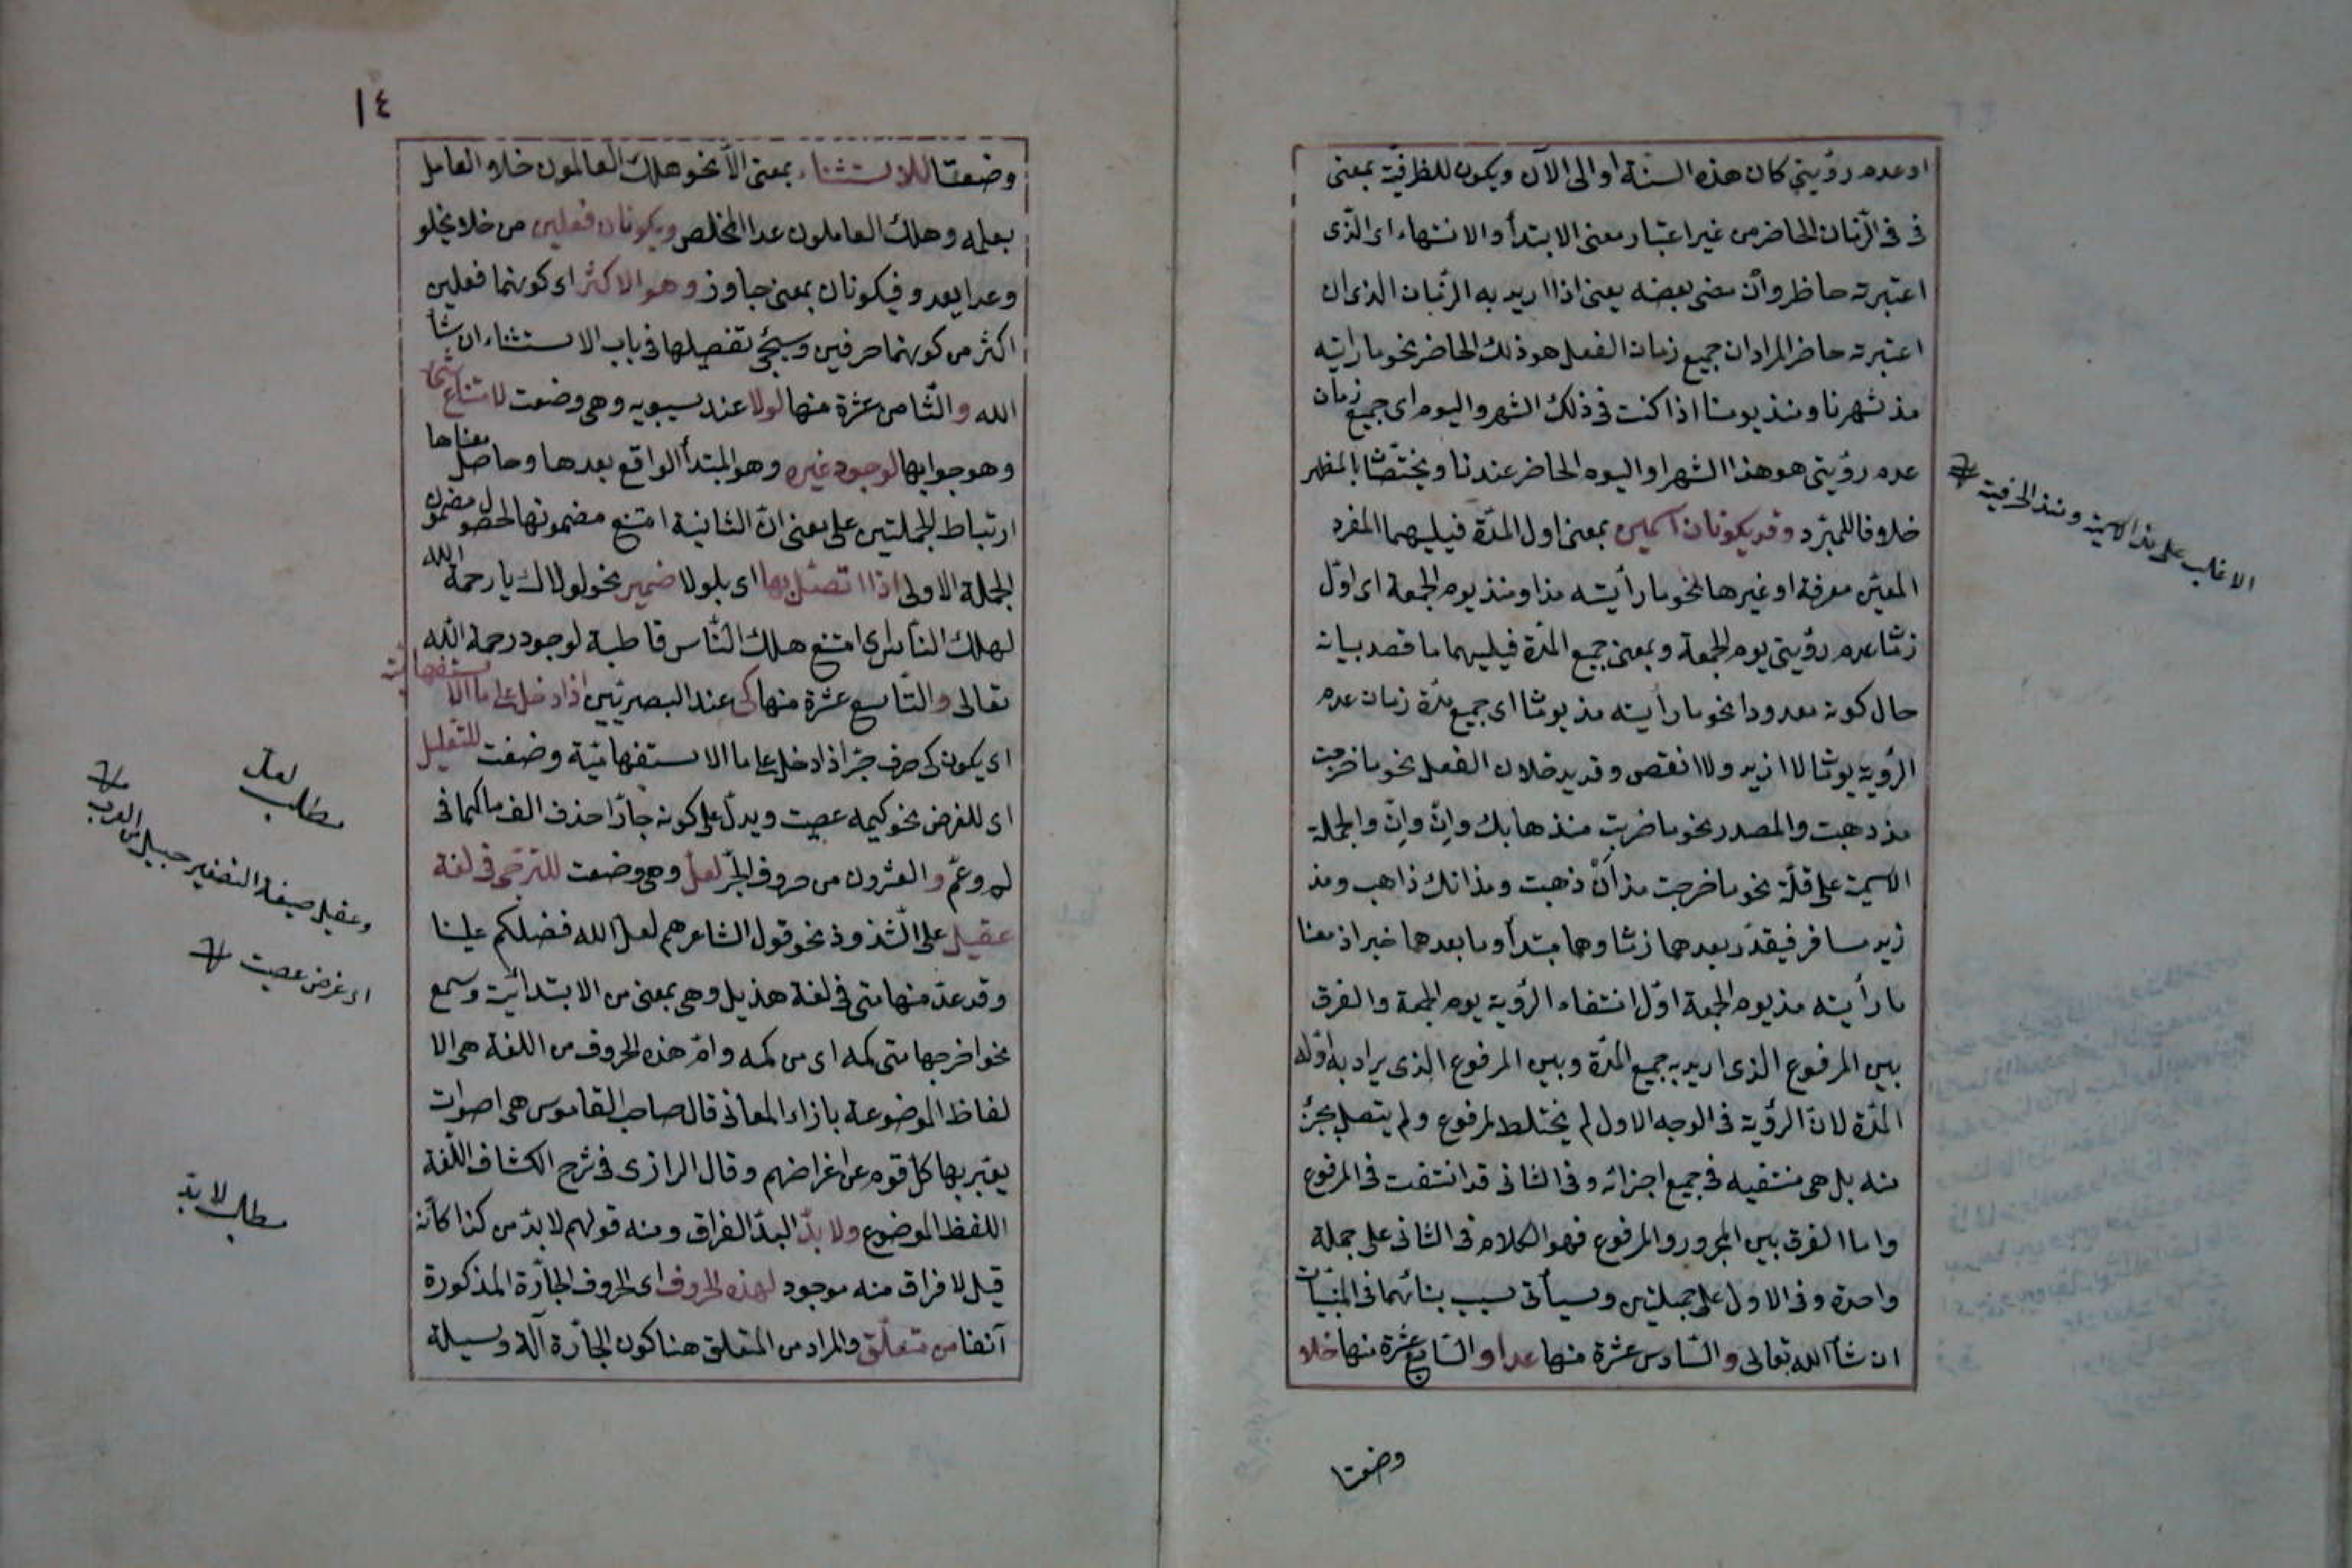 او عدم رؤيتي كان هذه السنة او الى الآن ويكون للظرفية بمعنى
فى فى الزمان الحاضر من غير اعتبار معنى الابتدأ والانتهاء اى الذى
اعتبرته حاظر وان مضى بعضه يعنى اذا اريد به الزمان الذى ان
اعتبرته حاضر المراد ان جميع زمان الفعل هو ذلك الحاضر نحو ما رايته
مذ شهرنا ومنذ يومنا اذا كنت فى ذلك الشهر واليوم اى جميع زمان
عدم رؤيتى هو هذا الشهر او اليوم الحاضر عندنا ويختصّا بالمظهر
خلافا للمبرد وقد يكونان اسمين بمعنى اول المدة فيليهما المفرد
المعين معرفة او غيرها نحو ما رأيته مذ او منذ يوم الجمعة اى اول
زمان عدم رؤيتى يوم الجمعة وبمعنى جميع المدة فيليهما ما قصد بيانه
حال كونه معدودا نحو ما رأيته مذ يومنا اى جميع مدة زمان عدم
الرؤية يومنا لا ازيد ولا انقص وقد يدخلان الفعل نحو ما خرجت
مذ ذهبت والمصدر نحو ما ضربت منذ ذهابك وانّ وان والجملة
الاسمية على قلة نحو ما خرجت مذ انّ ذهبت ومذ انك ذاهب ومذ
زيد مسافر فيقدر بعدها زمنا وهما مبتدأ وما بعدها خبر اذ معنا
ما رأيته مذ يوم الجمعة اول انتفاء الرؤية يوم الجمعة والفرق
بين المرفوع الذى اريد به جميع المدة وبين المرفوع الذى يراد به اوله
المدة لان الرؤية فى الوجه الاول لم يختلط لمرفوع ولم يتصل بجزئ
منه بل هى منتفيه فى جميع اجزائه وفى الثانى قد انتفت فى المرفوع
واما الفرق بين المجرور والمرفوع فهو الكلام فى الثانى على جملة
واحدة وفى الاول على جملتين وسيأتى سبب بنائهما فى المبنيات
ان شاء الله تعالى والسادس عشرة منها عدا والسابع عشرة منها خلا
وضعتا
الاغلب على مذ الاسمية ومنذ الحرفية
١٤
وضعتا للاستثناء بمعنى الا نحو هلك العالمون خلا العامل
بعلمه وهلك العاملون عدا المخلص ويكونان فعلين من خلا يخلو
وعدا يعدو فيكونان بمعنى جاوز وهو الاكثر اى كونهما فعلين
اكثر من كونهما حرفين وسيجئ تفصيلها فى باب الاستثناء ان شأ
الله والثامن عشرة منها لولا عند سيبويه وهى وضعت لامتناع شئ
وهو جوابها لوجود غيره وهو المبتدأ الواقع بعدها وحاصل معناها
ارتباط الجملتين على معنى ان الثانية امتنع مضمونها لحصول مضمون
الجملة الاولى اذا اتصل بها اى بلولا ضمير نحو لولاك يا رحمة الله
لهلك الناس اى امتنع هلك الناس قاطبة لوجود رحمة الله
تعالى والتاسع عشرة منها كى عند البصريين اذا دخل على ما الاستفهامية
اى يكون كى حرف جر اذا دخل على ما الاستفهامية وضعت للتعليل
اى للغرض نحو كيمه عصيت ويدل على كونه جارا حذف الف ما كما فى
لم وعم والعشرون من حروف الجر لعل وهى وضعت للترجى فى لغة
عقيل على الشذوذ نحو قول الشاعر هم لعل الله فضلكم علينا
وقد عد منها متى فى لغة هذيل وهى بمعنى من الابتدائية وسمع
نحو اخرجها متى كمه اى من كمه وامّ هذه الحروف من اللغة هى الا
لفاظ الموضوعة بازاء المعانى قال صاحب القاموس هى اصوات
يعبر بها كل قوم عن اغراضهم وقال الرازى فى شرح الكشاف اللغة
اللفظ الموضوع ولا بدّ البد الفراق ومنه قولهم لا بد من كذا كأنه
قيل لا فراق منه موجود لهذه الحروف اى الحروف الجارة المذكورة
آنفا من متعلق والمراد من المتعلق هنا كون الجارة آلة وسيلة
مطلب لعل
وعقيل صيغة التصغير جبيل من العرب
اى غرض عصيت
مطلب لا بد